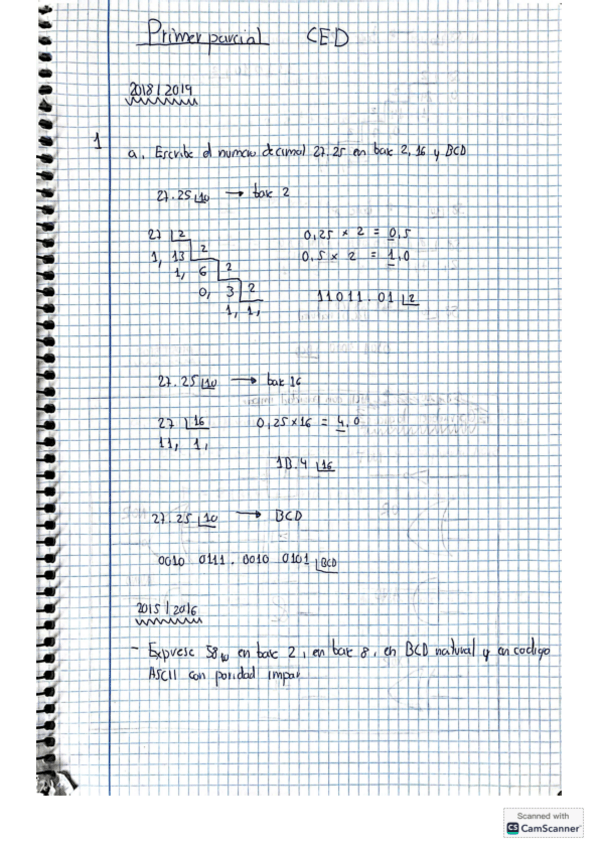 Primer parcial CED
2018/2019
1
a. Escribe el numero decimal 27.25 en base 2, 16 y BCD
27.25 10 → base 2
27 2
1, 13 2
1, 6 2
0, 3 2
1, 1,
0,25 × 2 = 0,5
0,5 × 2 = 1,0
11011.01 2
27.25 10 → base 16
27 16
11, 1,
0,25×16 = 4,0
1B.4 16
27.25 10 → BCD
0010 0111. 0010 0101 BCD
2015/2016
- Exprese 58 10 en base 2, en base 8, en BCD natural y en codigo
ASCII con paridad impar
Scanned with
CS CamScanner